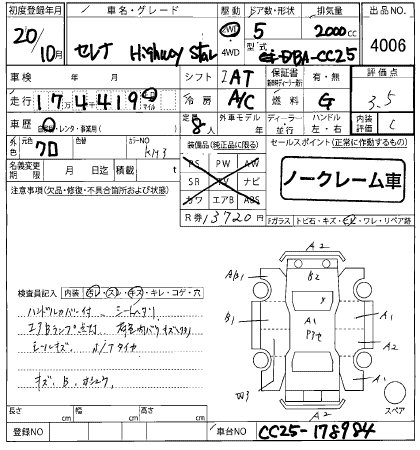 初度登録年月 車名・グレード 駆動 ドア数・形状 排気量 出品NO
20/10月 セレナ Highway Star 2WD 4WD 5 2000cc 4006
型式 DBA-CC25
車検 年 月 シフト IAT 保証書 有・無 評価点
走行 174419 マイル 冷房 A/C 燃料 G 3.5
車歴 自家用・レンタ・事業用 定員 8人 外車モデル 年 ディーラー 並行 ハンドル 左・右 内装 C
外色 元色 クロ 色替 カラーNO KH3 装備品(純正品に限る) セールスポイント(正常に作動するもの)
PS PW AW
名義変更期限 月 日迄 積載 t SR TV ナビ ノークレーム車
注意事項(欠品・修復・不具合箇所および状態) カワ エアB ABS
R券 13720円 Fガラス トビ石・キズ・ヒビ・ワレ・リペア跡
A2
B2
A,B1
検査員記入 内装 汚レ・スレ・キズ・キレ・コゲ・穴
ハンドルカバー付 シートヘタリ B1 A1 A1
エアBランプ点灯 A2
シールキズ、 S/Tタイヤ
キズ、B、 A1
A2 スペア
長さ cm 幅 cm 高さ cm
登録NO 車台NO CC25-178984